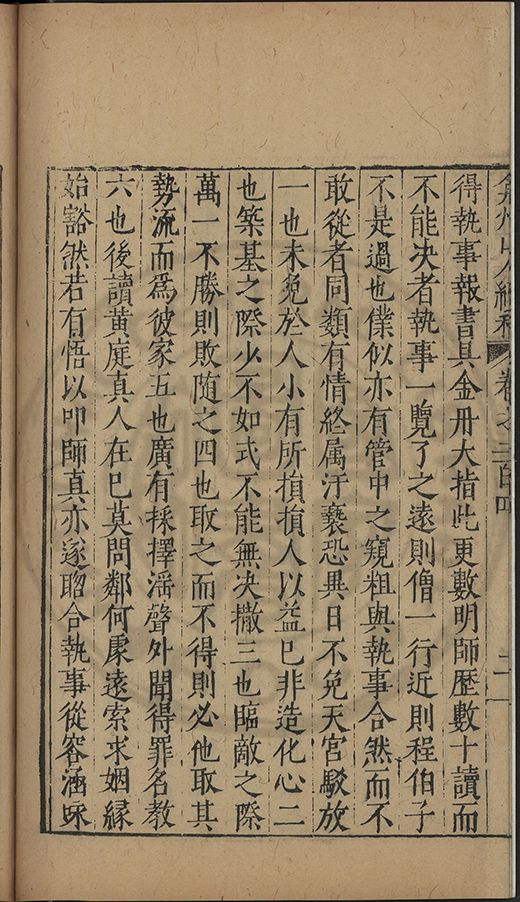 弇州山人續稿 卷之二百
得執事報書具金丹大指此更數明師歷數十讀而
不能决者執事一覽了之遠則僧一行近則程伯子
不是過也僕似亦有管中之窺粗與執事合然而不
敢從者同類有情終属汙褻恐異日不免天宮駮放
一也未免於人小有所損損人以益巳非造化心二
也築基之際少不如式不能無决撒三也臨敵之際
萬一不勝則敗隨之四也取之而不得則必他取其
勢流而爲彼家五也廣有採擇滛聲外聞得罪名教
六也後讀黄庭真人在巳莫問鄰何䖏遠索求姻縁
始豁然若有悟以叩師真亦遂䏈合執事從容涵